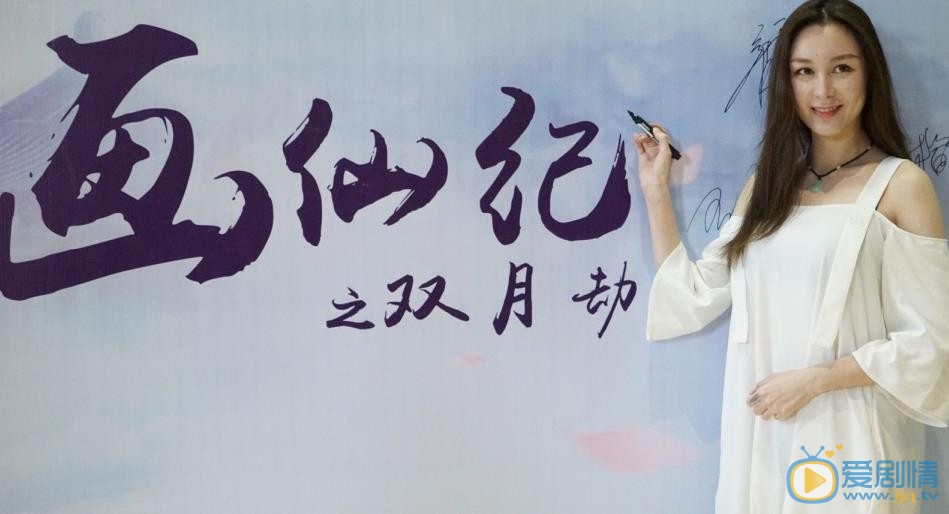 画仙纪
之双月劫
爱剧情
www.ijq.tv